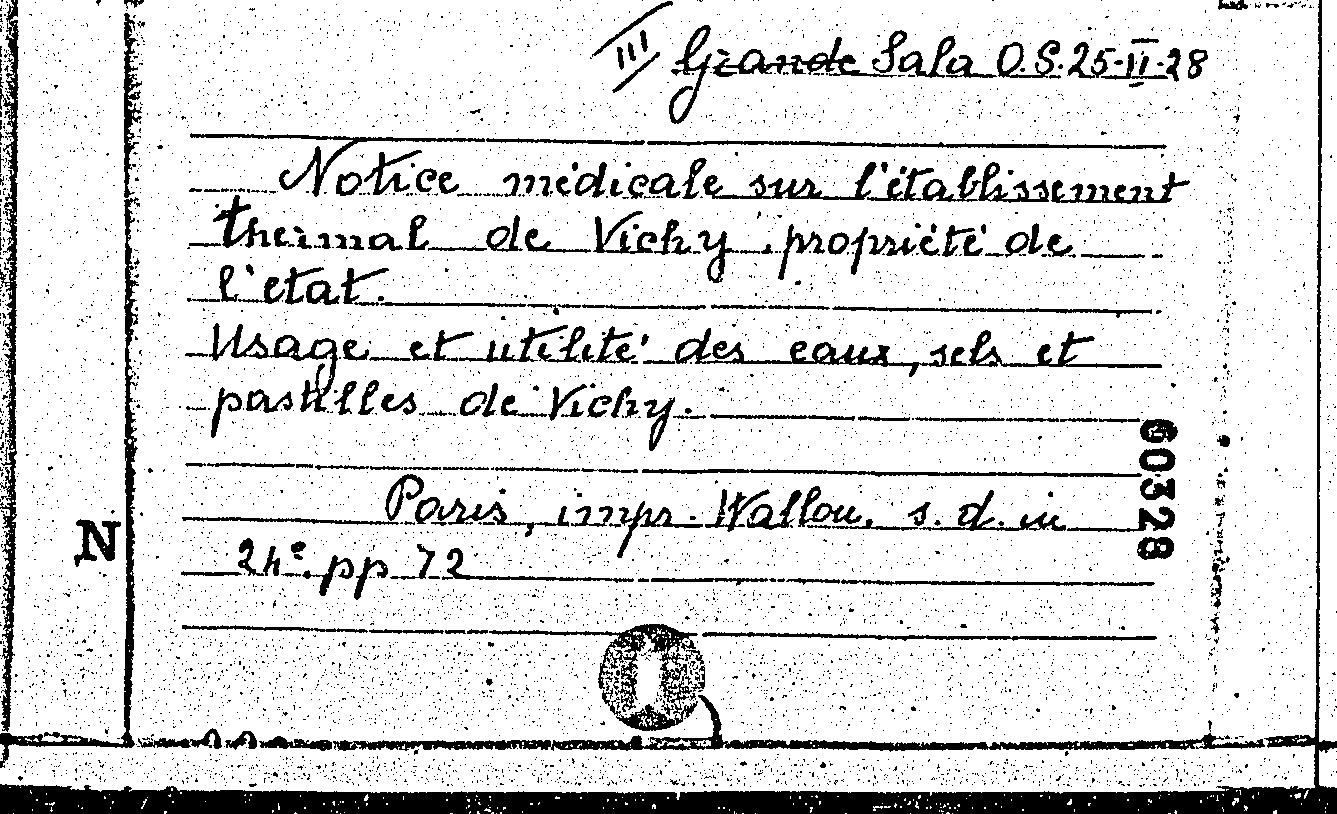 III Grande Sala O.S. 25-II-28
Notice médicale sur l'établissement
thermal de Vichy, propriété de
l'etat.
Usage et utilité des eaux, sels et
pastilles de Vichy.
Paris, impr. Wallon. s.d. in
24°. pp 72
60328
N